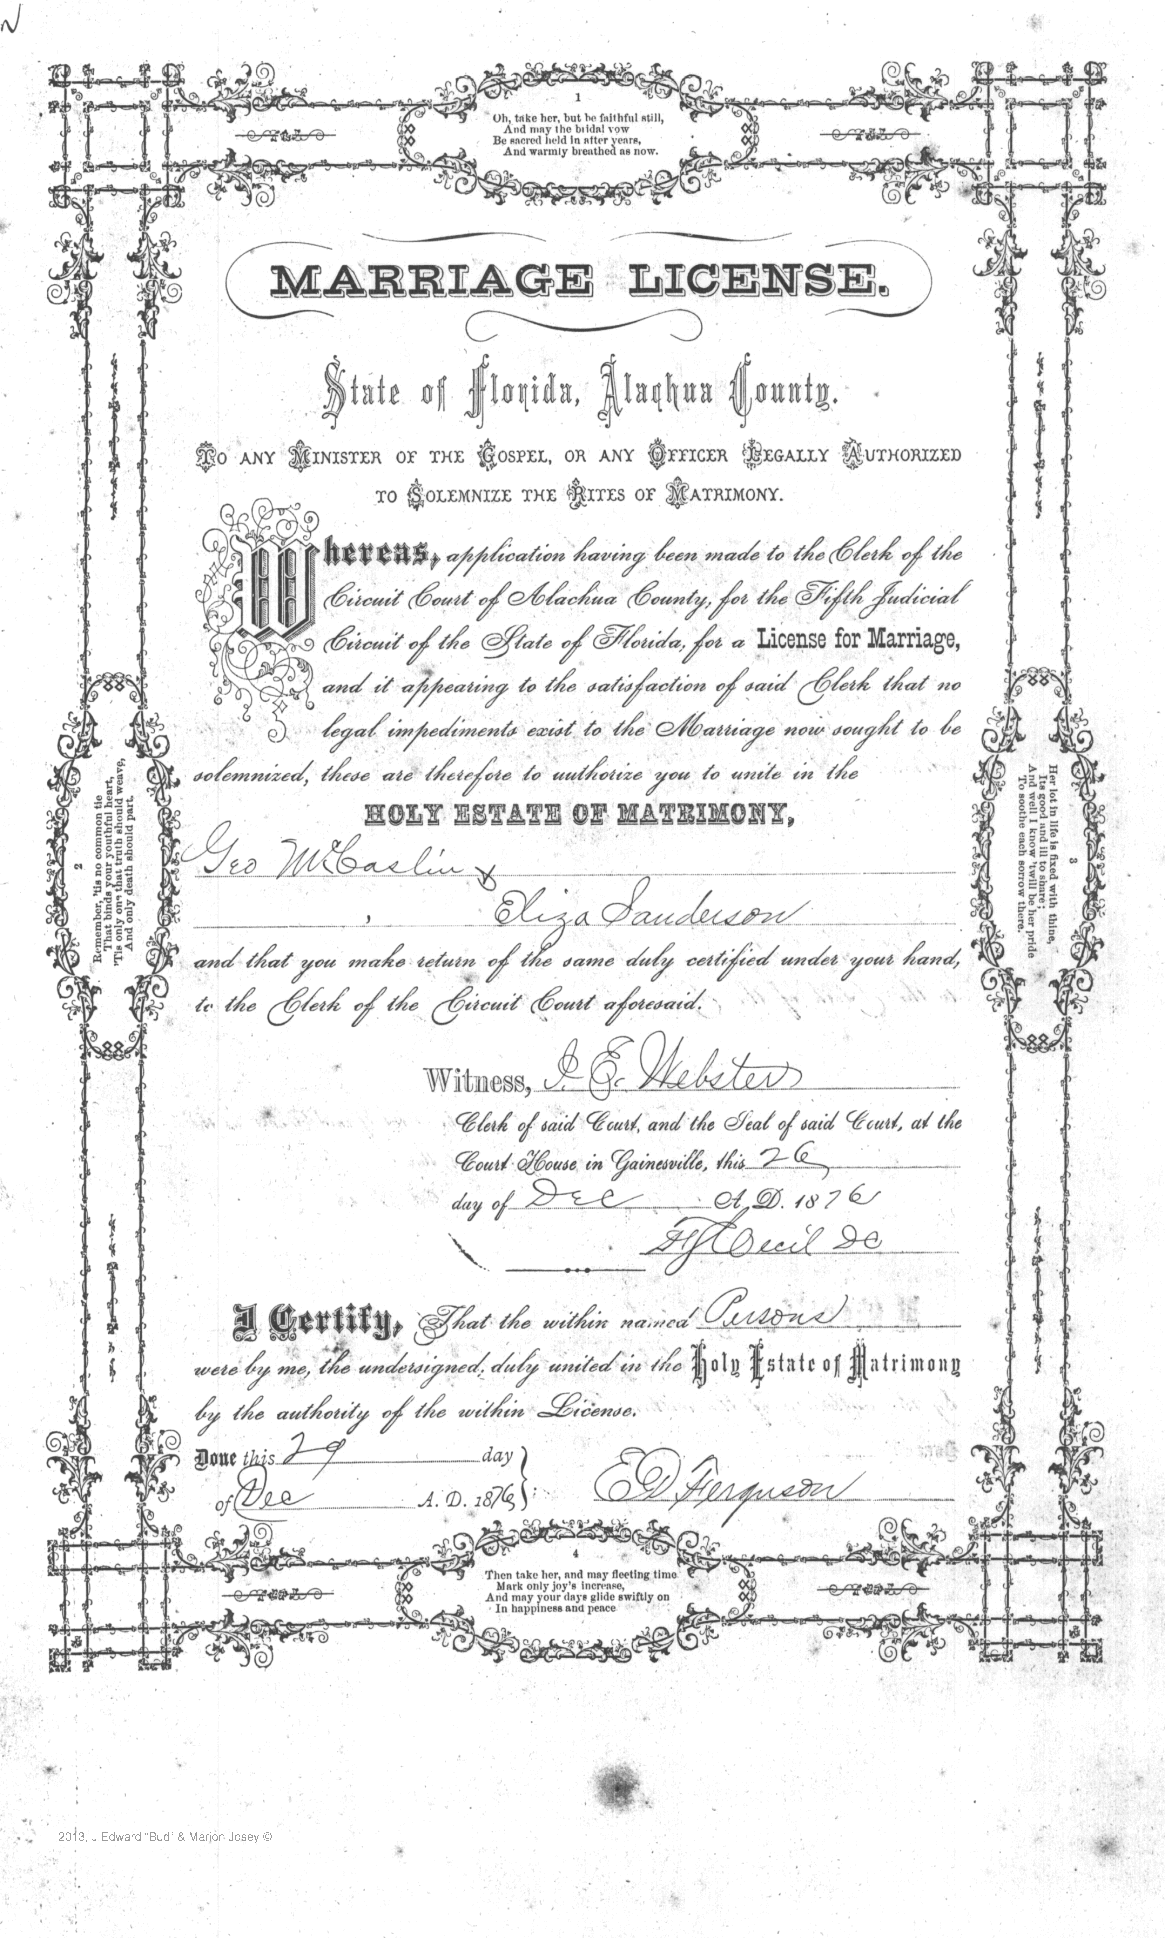 N
1
Oh, take her, but be faithful still,
And may the bridal vow
Be sacred held in after years,
And warmly breathed as now.
MARRIAGE LICENSE.
State of Florida, Alachua County.
To any Minister of the Gospel, or any Officer Legally Authorized
to Solemnize the Rites of Matrimony.
Whereas, application having been made to the Clerk of the
Circuit Court of Alachua County, for the Fifth Judicial
Circuit of the State of Florida, for a License for Marriage,
and it appearing to the satisfaction of said Clerk that no
legal impediments exist to the Marriage now sought to be
solemnized, these are therefore to authorize you to unite in the
HOLY ESTATE OF MATRIMONY,
Geo McCaslin &
Eliza Sanderson
and that you make return of the same duly certified under your hand,
to the Clerk of the Circuit Court aforesaid.
2
Remember, 'tis no common tie
That binds your youthful heart,
'Tis only one that truth should weave,
And only death should part.
3
Her lot in life is fixed with thine,
Its good and ill to share;
And well I know 'twill be her pride
To soothe each sorrow there.
Witness, J. E. Webster
Clerk of said Court, and the Seal of said Court, at the
Court House in Gainesville, this 26
day of Dec A. D. 1876
Cecil DC
I Certify, That the within named Persons
were by me, the undersigned, duly united in the Holy Estate of Matrimony
by the authority of the within License.
Done this 29 day
of Dec A. D. 1876
E D Ferguson
4
Then take her, and may fleeting time
Mark only joy's increase,
And may your days glide swiftly on
In happiness and peace
2013, J Edward "Bud" & Marjori Josey ©